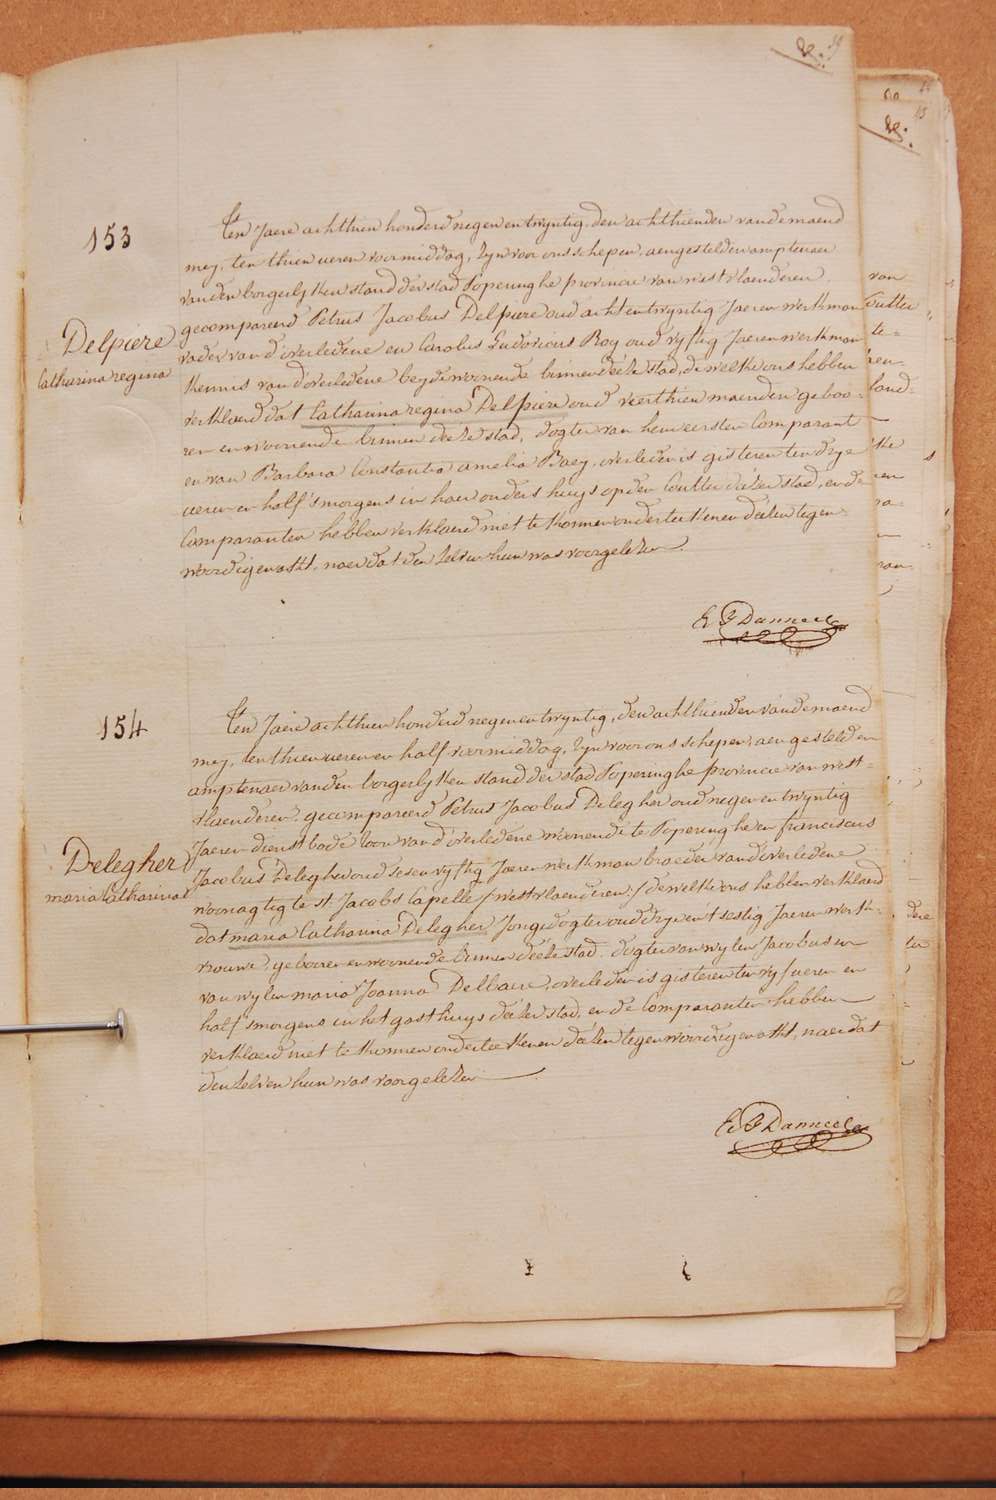 153
Delpiere
Catharina regina
Ten Jaere achthien honderd negen en twyntig, den achthienden van de maend
mey, ten thien ueren voormiddag, zyn voor ons schepen, aengestelden amptenaer
van den borgerlyken stand der stad Poperinghe provincie van westvlaenderen,
gecompareerd Petrus Jacobus Delpiere oud acht en twyntig Jaeren werkman
vader van d'overledene en Carolus Ludovicus Roy oud vyftig Jaeren werkman
kennis van d'overledene beyde woonende binnen deeze stad, de welke ons hebben
verklaerd dat Catharina regina Delpiere oud veerthien maenden geboo-
ren en woonende binnen deeze stad, dogter van hem eersten Comparant
en van Barbara Constantia amelia Baey, overleden is gisteren ten dry
ueren en half 's morgens in haer ouders huys op den Coutter dezer stad, en de
Comparanten hebben verklaerd niet te konnen onderteekenen dezen tegen-
woordigen akt, naer dat den zelven hun was voorgelezen.
154
Delegher
maria Catharina
Ten Jaere achthien honderd negen en twyntig, den achthienden van de maend
mey, ten thien ueren en half voormiddag, zyn voor ons schepen, aengestelden
amptenaer van den borgerlyken stand der stad Poperinghe provincie van west-
vlaenderen, gecompareerd Petrus Jacobus Delegher oud negen en twyntig
Jaeren dienstbode zoon van d'overledene woonende te Poperinghe en franciscus
Jacobus Delegher oud sesen vyftig Jaeren werkman broeder van d'overledene
woonagtig te st Jacobs Capelle /westvlaenderen:/ de welke ons hebben verklaerd
dat maria Catharina Delegher Jonge dogter oud dry en 't sestig Jaeren werk-
vrouwe, geboren en woonende binnen deeze stad, dogter van wylen Jacobus en
van wylen maria Joanna Delbaere, overleden is gisteren ten vyf ueren en
half 's morgens in het gasthuys dezer stad, en de Comparanten hebben
verklaerd niet te konnen onderteekenen dezen tegenwoordigen akt, naer dat
den zelven hun was voorgelezen